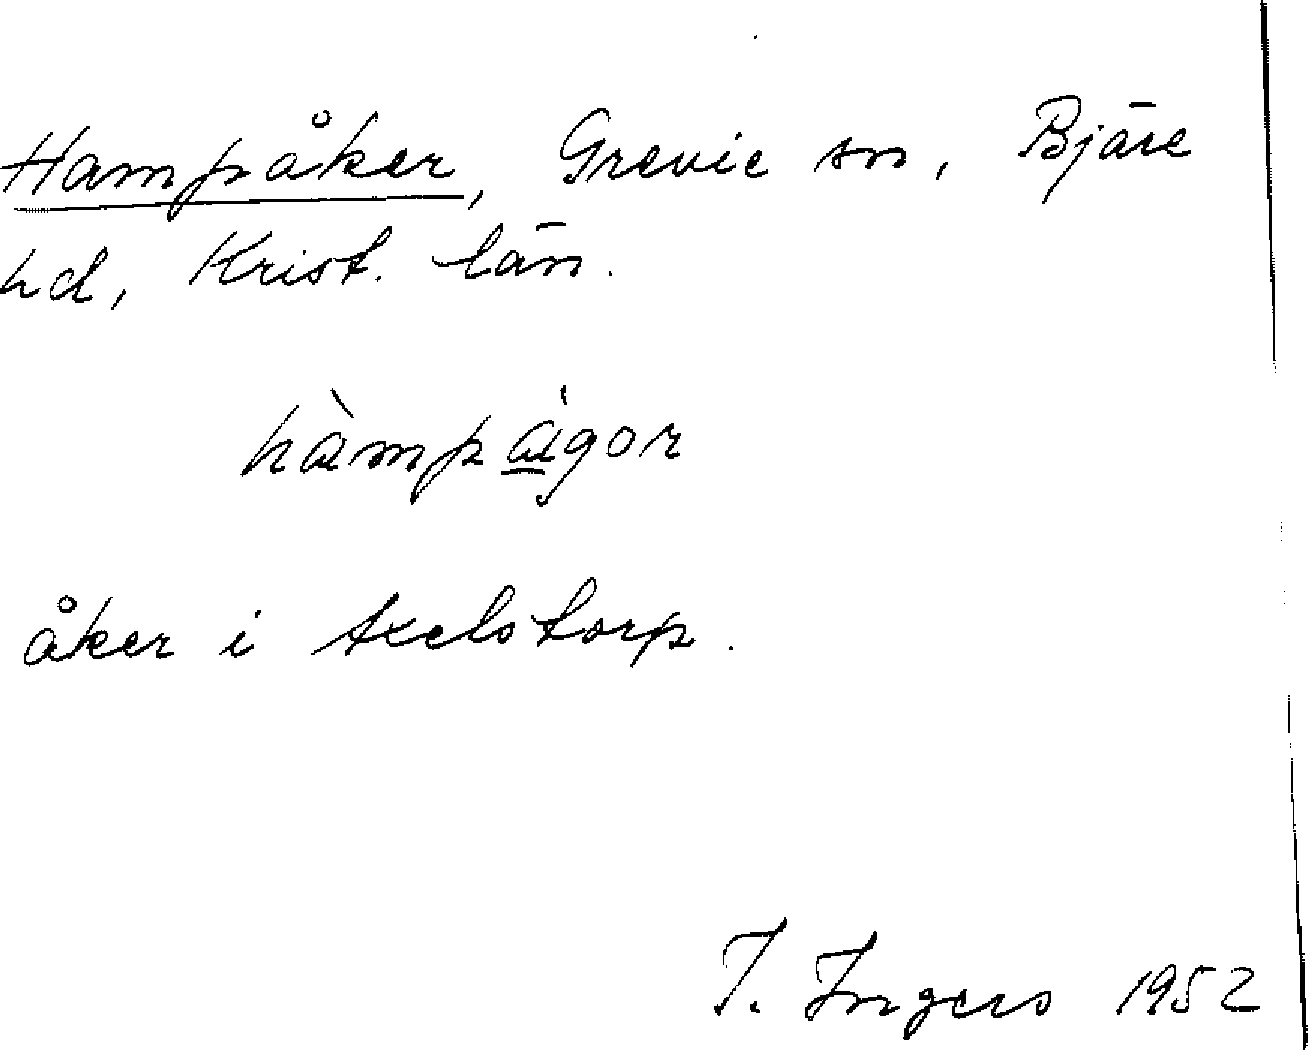 Hampåker, Grevie sn, Bjäre
hd, Krist. län.
hàmpáigor
åker i Axelstorp.
I. Ingers 1952